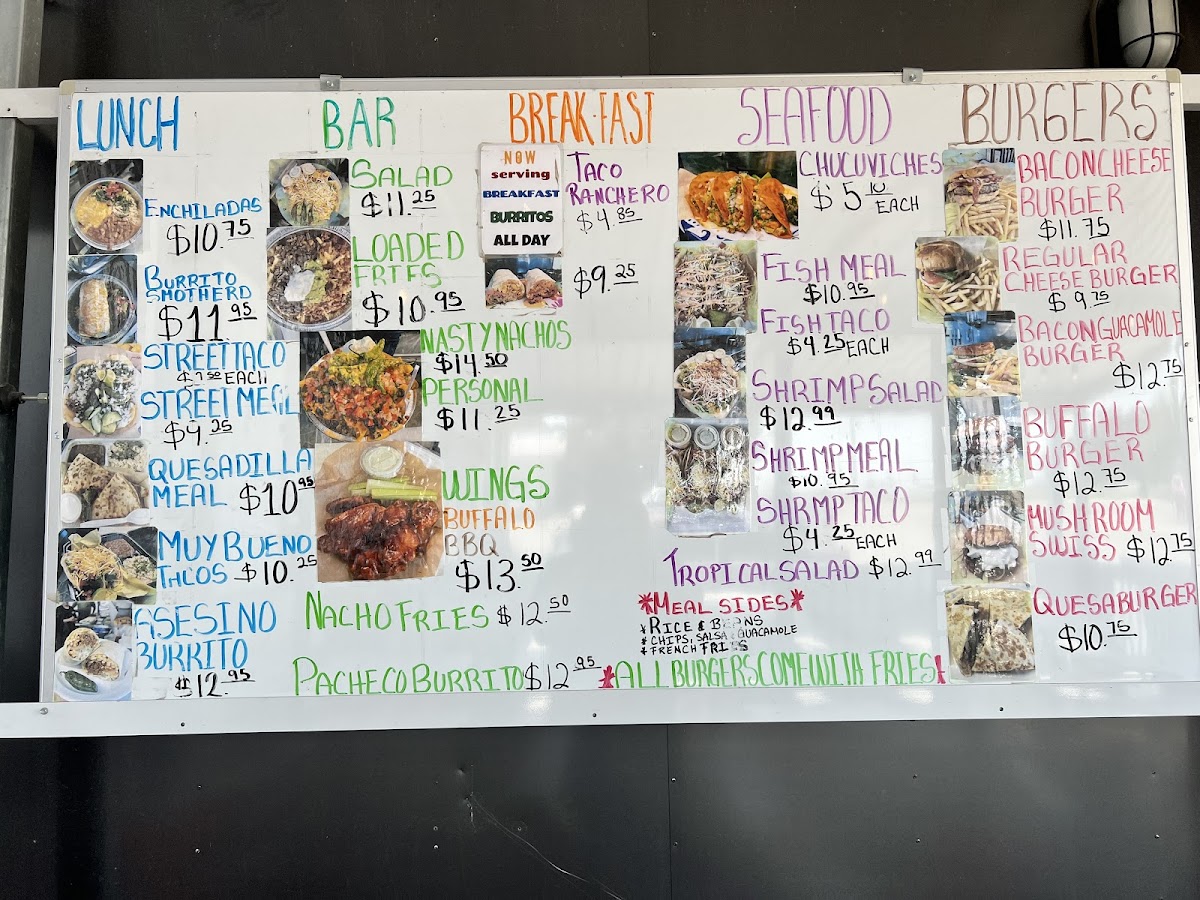 LUNCH
ENCHILADAS
$10.75
BURRITO
SMOTHERD
$11.95
STREET TACO
EACH
STREET MEAL
QUESADILLA
MEAL $10.95
MUY BUENO
TACOS $10.25
ASESINO
BURRITO
$12.95
BAR
SALAD
$11.25
LOADED
FRIES
$10.95
NASTY NACHOS
$14.50
PERSONAL
$11.25
WINGS
BUFFALO
BBQ
$13.50
NACHO FRIES $12.50
PACHECO BURRITO $12.95
BREAK.FAST
NOW
serving
BREAKFAST
BURRITOS
ALL DAY
TACO
RANCHERO
$4.85
$9.25
SEAFOOD
CHUCUVICHES
$5.10
EACH
FISH MEAL
$10.95
FISH TACO
$4.25 EACH
SHRIMP SALAD
$12.99
SHRIMP MEAL
$10.95
SHRMP TACO
$4.25 EACH
TROPICAL SALAD $12.99
*MEAL SIDES*
*RICE & BEANS
*CHIPS, SALSA, GUACAMOLE
*FRENCH FRIES
*ALL BURGERS COME WITH FRIES*
BURGERS
BACON CHEESE
BURGER
$11.75
REGULAR
CHEESE BURGER
$9.75
BACON GUACAMOLE
BURGER
$12.75
BUFFALO
BURGER
$12.75
MUSHROOM
SWISS $12.75
QUESABURGER
$10.75